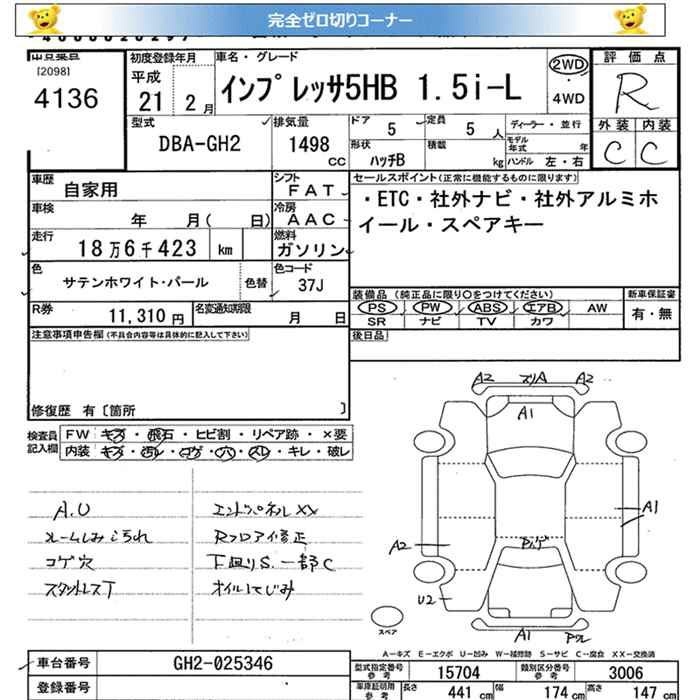 完全ゼロ切りコーナー
[2098]
4136
初度登録年月
平成
21 2 月
車名・グレード
インプレッサ5HB 1.5i-L
2WD
・
4WD
評価点
R
外装 内装
C C
型式
DBA-GH2
排気量
1498
CC
ドア
5
定員
5 人
ディーラー・並行
形状
ハッチB
積載
kg
モデル年式 年
ハンドル 左・右
車歴 自家用
シフト
FAT
車検 年 月( 日)
冷房
AAC
走行 18万6千423 km
燃料
ガソリン
色
サテンホワイト・パール
色替
色コード
37J
R券 11,310 円
名変通知期限
月 日
セールスポイント(正常に機能するものに限ります)
・ETC・社外ナビ・社外アルミホ
イール・スペアキー
装備品 (純正品に限り○をつけてください)
新車保証書
PS PW ABS エアB AW
有・無
SR ナビ TV カワ
後日品
注意事項申告欄(不具合内容等は具体的に記入して下さい)
修復歴 有〔箇所 〕
検査員
記入欄
FW キズ・飛石・ヒビ割・リペア跡・×要
内装 キズ・汚レ・コゲ・穴・スレ・キレ・破レ
A.U
ルームしみ汚れ
コゲ穴
スタットレスT
エントパネルXX
Rフロア修正
下廻りS.一部C
オイルにじみ
A2 スリA A2
A1
A1
A2
U2
A1
スペア
A－キズ E－エクボ U－凹み W－補修跡 S－サビ C－腐食 XX－交換済
車台番号 GH2-025346
登録番号
型式指定番号
参考
15704
類別区分番号
参考
3006
車庫証明用
参考
長さ
441 cm
幅
174 cm
高さ
147 cm